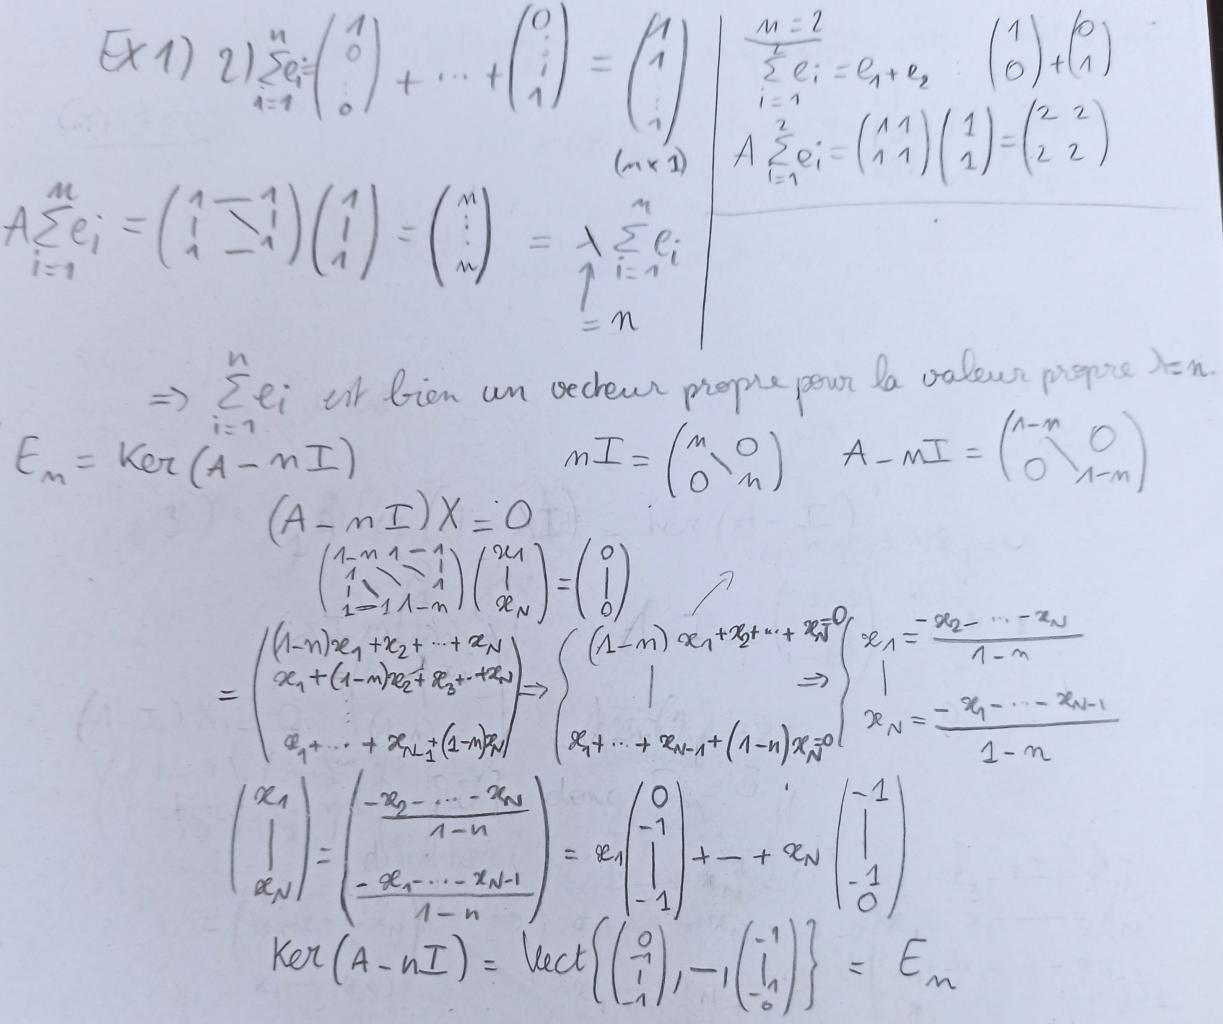 EX 1) 2) $\sum_{i=1}^{n} e_i = \begin{pmatrix} 1 \\ 0 \\ \vdots \\ 0 \end{pmatrix} + \cdots + \begin{pmatrix} 0 \\ \vdots \\ 1 \end{pmatrix} = \begin{pmatrix} 1 \\ 1 \\ \vdots \\ 1 \end{pmatrix}$
(n×1)
n = 2
$\sum_{i=1}^{2} e_i = e_1 + e_2 \quad \begin{pmatrix} 1 \\ 0 \end{pmatrix} + \begin{pmatrix} 0 \\ 1 \end{pmatrix}$
$A \sum_{i=1}^{2} e_i = \begin{pmatrix} 1 & 1 \\ 1 & 1 \end{pmatrix} \begin{pmatrix} 1 \\ 1 \end{pmatrix} = \begin{pmatrix} 2 & 2 \\ 2 & 2 \end{pmatrix}$
$A \sum_{i=1}^{n} e_i = \begin{pmatrix} 1 & - & 1 \\ | & \diagdown & | \\ 1 & - & 1 \end{pmatrix} \begin{pmatrix} 1 \\ | \\ 1 \end{pmatrix} = \begin{pmatrix} n \\ \vdots \\ n \end{pmatrix} = \lambda \sum_{i=1}^{n} e_i$
↑
= n
⇒ $\sum_{i=1}^{n} e_i$ est bien un vecteur propre pour la valeur propre λ=n.
$E_n = Ker(A - nI) \quad nI = \begin{pmatrix} n & 0 \\ 0 & n \end{pmatrix} \quad A - nI = \begin{pmatrix} 1-n & 0 \\ 0 & 1-n \end{pmatrix}$
(A - nI) X = 0
$\begin{pmatrix} 1-n & 1 & - & 1 \\ 1 & \diagdown & \diagdown & | \\ | & \diagdown & \diagdown & 1 \\ 1 & - & 1 & 1-n \end{pmatrix} \begin{pmatrix} x_1 \\ | \\ x_N \end{pmatrix} = \begin{pmatrix} 0 \\ | \\ 0 \end{pmatrix}$
$= \begin{pmatrix} (1-n)x_1 + x_2 + \cdots + x_N \\ x_1 + (1-n)x_2 + x_3 + \cdots + x_N \\ \vdots \\ x_1 + \cdots + x_{N-1} + (1-n)x_N \end{pmatrix} \Rightarrow \begin{cases} (1-n)x_1 + x_2 + \cdots + x_N = 0 \\ | \\ x_1 + \cdots + x_{N-1} + (1-n)x_N = 0 \end{cases} \Rightarrow \begin{cases} x_1 = \frac{-x_2 - \cdots - x_N}{1-n} \\ | \\ x_N = \frac{-x_1 - \cdots - x_{N-1}}{1-n} \end{cases}$
$\begin{pmatrix} x_1 \\ | \\ x_N \end{pmatrix} = \begin{pmatrix} \frac{-x_2 - \cdots - x_N}{1-n} \\ \\ \frac{-x_1 - \cdots - x_{N-1}}{1-n} \end{pmatrix} = x_1 \begin{pmatrix} 0 \\ -1 \\ | \\ -1 \end{pmatrix} + - + x_N \begin{pmatrix} -1 \\ | \\ -1 \\ 0 \end{pmatrix}$
$Ker(A - nI) = Vect\left\{ \begin{pmatrix} 0 \\ -1 \\ | \\ -1 \end{pmatrix}, -, \begin{pmatrix} -1 \\ | \\ -1 \\ 0 \end{pmatrix} \right\} = E_n$